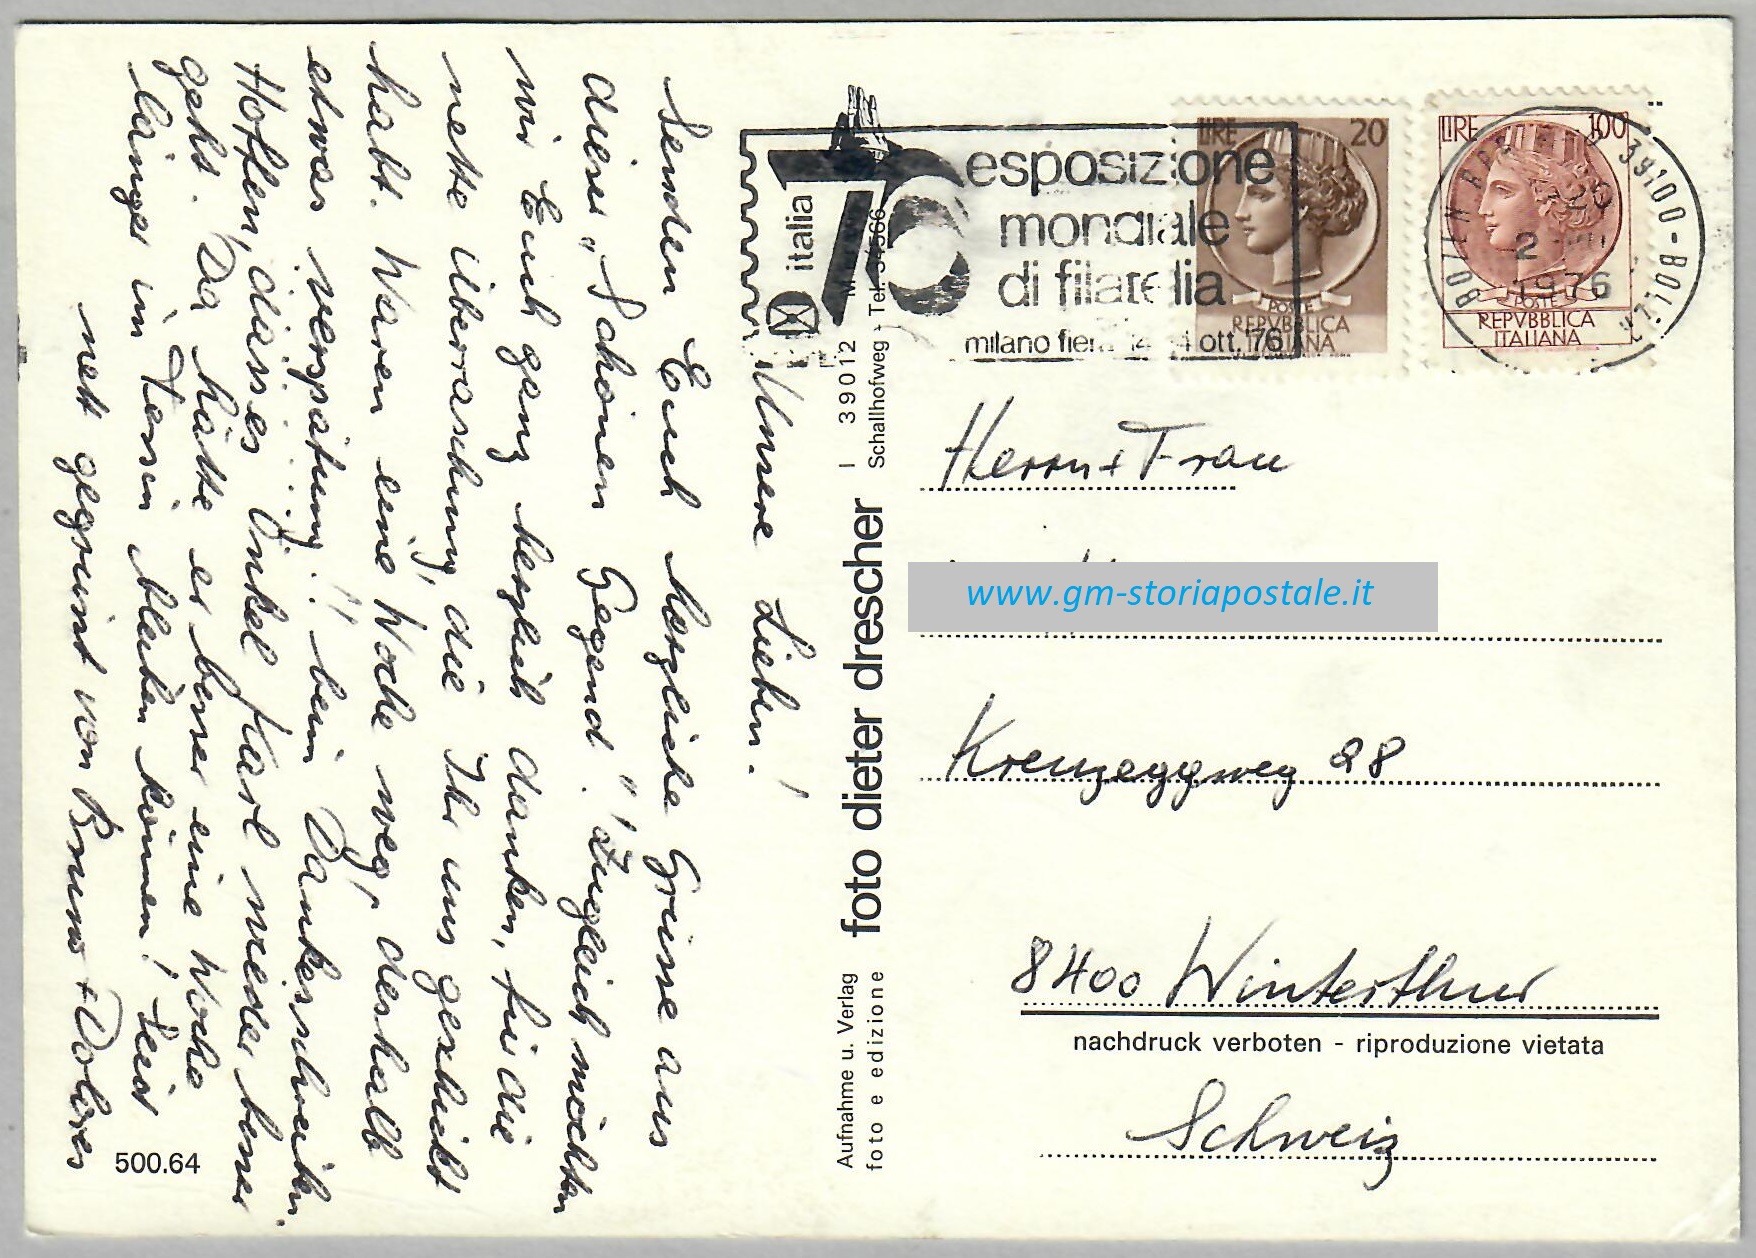 Unsere Lieben!
Senden Euch herzliche Grüsse aus
dieser „Schönen Gegend." Zugleich möchten
wir Euch ganz herzlich danken, für die
nette Überraschung, die Ihr uns geschickt
habt. Waren eine Woche weg, deshalb
etwas verspätung!! beim Dankesschreiben.
Hoffen, dass es Onkel Karl wieder besser
geht. Da hätte er besser eine Woche
länger im Tessin bleiben können! Seid
nett gegrüsst von Bruno + Dolores
500.64
Aufnahme u. Verlag
foto e edizione
foto dieter drescher
I 39012
Schallhofweg - Tel. 34566
italia
76
esposizione
mondiale
di filatelia
milano fiera 14 ott. '76
LIRE 20
POSTE
REPVBBLICA
ITALIANA
LIRE 100
POSTE
REPVBBLICA
ITALIANA
39100-BOLZ
BOZEN
1976
Herrn + Frau
www.gm-storiapostale.it
Kreuzeggweg 28
8400 Winterthur
nachdruck verboten - riproduzione vietata
Schweiz